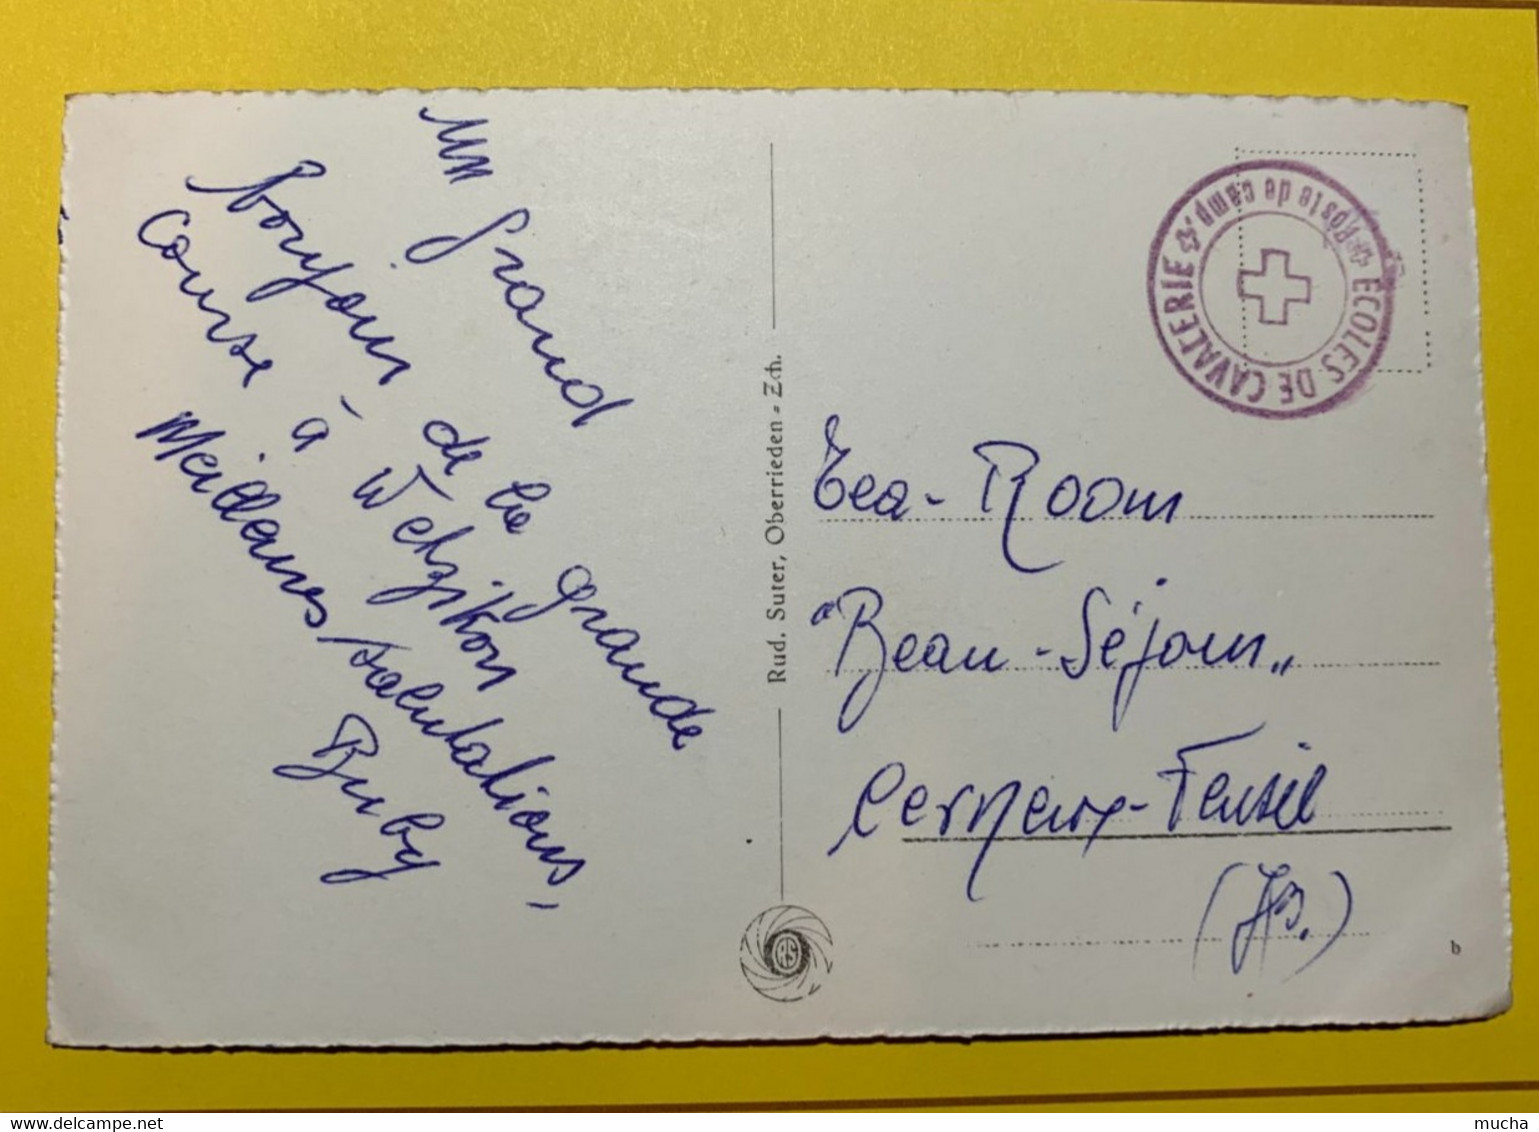 Un grand
bonjour de la grande
Course à Wetzikon
Meilleures salutations,
Buby
Rud. Suter, Oberrieden - Zch.
RS
ECOLES DE CAVALERIE
Poste de camp.
Tea-Room
"Beau-Séjour"
Cerneux-Veusil
(JB.)
b
delcampe.net
mucha